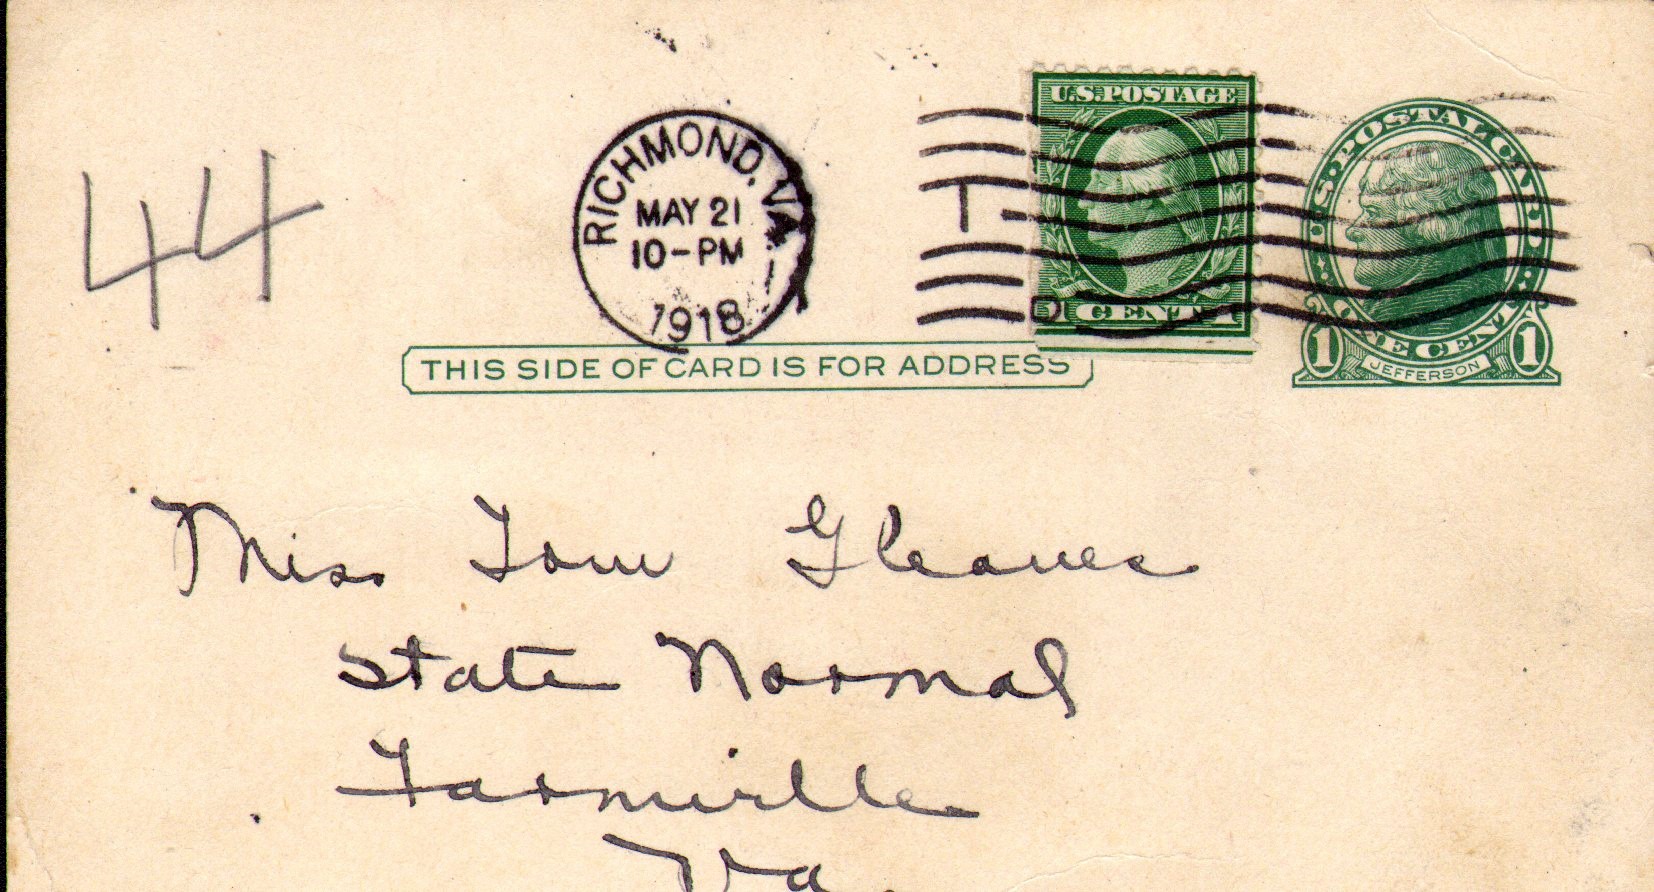 44
RICHMOND, VA
MAY 21
10-PM
1918
T
D
U.S. POSTAGE
CENT 1
U.S. POSTAL CARD
ONE CENT
1 JEFFERSON 1
THIS SIDE OF CARD IS FOR ADDRESS
Miss Tom Gleaves
State Normal
Farmville
Va.